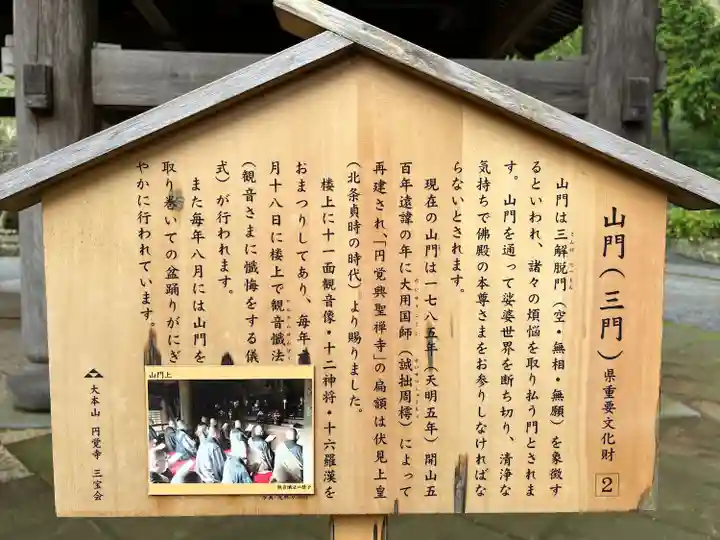 山門(三門) 県重要文化財 2
山門は三解脱門(空・無相・無願)を象徴す
るといわれ、諸々の煩悩を取り払う門とされま
す。山門を通って娑婆世界を断ち切り、清浄な
気持ちで佛殿の本尊さまをお参りしなければな
らないとされます。
現在の山門は一七八五年(天明五年)開山五
百年遠諱の年に大用国師(誠拙周樗)によって
再建され、「円覚興聖禅寺」の扁額は伏見上皇
(北条貞時の時代)より賜りました。
楼上に十一面観音像・十二神将・十六羅漢を
おまつりしてあり、毎年
月十八日に楼上で観音懺法
(観音さまに懺悔をする儀
式)が行われます。
また毎年八月には山門を
取り巻いての盆踊りがにぎ
やかに行われています。
大本山 円覚寺 三宝会
山門上